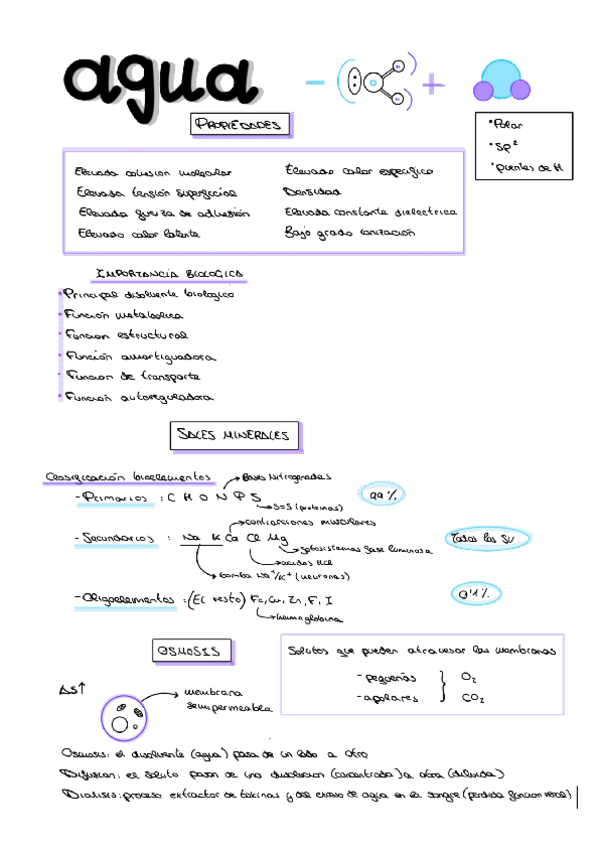 agua
- +
PROPIEDADES
• Polar
• Sp²
• Puentes de H
Elevada cohesion molecular
Elevado calor específico
Elevada tensión superficial
Densidad
Elevada fuerza de adhesión
Elevada constante dielectrica
Elevado calor latente
Bajo grado ionización
IMPORTANCIA BIOLOGICA
• Principal disolvente biologico
• Función metabolica
• Funcion estructural
• Función amortiguadora
• Funcion de transporte
• Función autoreguladora
SALES MINERALES
Clasificación bioelementos
Bases Nitrogenadas
- Primarios : C H O N P S
99%
S=S (proteinas)
contracciones musculares
- Secundarios : Na K Ca Cl Mg
Todos los SV
fotosistemas fase luminosa
acidos HCl
bomba Na⁺/K⁺ (neurones)
- Oligoelementos : (El resto) Fe, Cu, Zn, F, I
0'1%
hemoglobina
OSMOSIS
Solutos que pueden atravesar las membranas
- pequeñas } O₂
- apolares } CO₂
ΔS↑
membrana
semipermeable
Osmosis: el disolvente (agua) pasa de un lado a otro
Difusion: el soluto pasan de una disolucion (concentrada) a otra (diluida)
Dialisis: proceso extractor de toxinas y del exceso de agua en la sangre (perdida funcion renal)